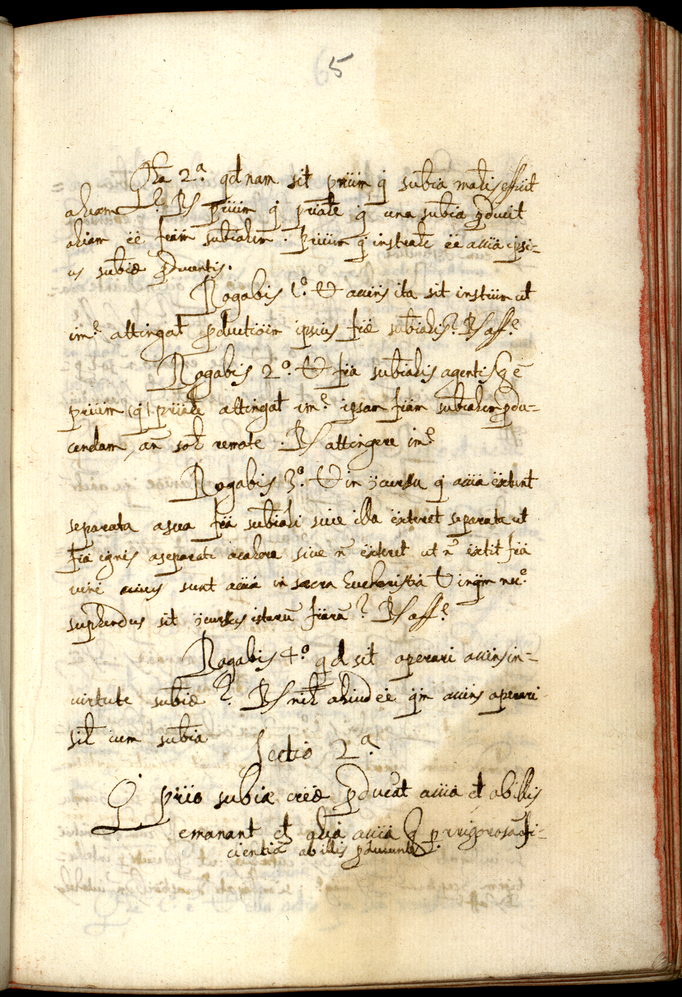 65
2.ª qd nam sit prium q subia malis efficit
aliam? Rs prium q priale q una subia pducit
aliam ee fiam subialem. Prium q instrale ee accia ipsi=
us subiæ pducentis.
Rogabis 1.º Ut accins ita sit instrium ut
im.e attingat pductioīm ipsius fiæ subialis? Rs aff.e
Rogabis 2.º Ut fia subialis agentis q ē
prium q priale attingat im.e ipsam fiam subialem pdu=
cendam, an sol remote. Rs attingere im.e
Rogabis 3.º Ut in 2cursu q accia existunt
separata a sua fia subiali sive illa existeret separata ut
fia ignis a separati a calore sive n existeret ut n extit fia
vini cuius sunt accia in sacra Eucharistia
suplendus sit 2cursus istarū fiarū? Rs aff.e
Rogabis 4.º qd sit operari accins in=
virtute subiæ? Rs nil aliud ee qm accins operari
sil cum subia
Sectio 2.ª
prio subiæ creæ pducāt accia et ab illis
emanant et alia accia q p rigorosam effi-
cientia ab illis pducuntur.